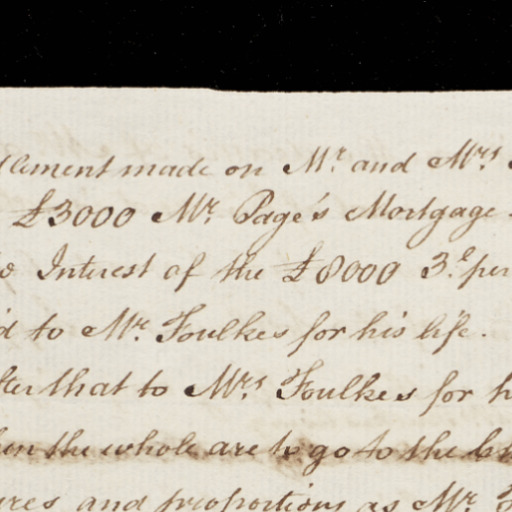 tlement made on Mr. and Mrs.
£3000 Mr. Page's Mortgage
Interest of the £8000 3. per
d to Mr. Foulkes for his life.
fter that to Mrs. Foulkes for h
hen the whole are to go to the
ures and proportions as Mr. F